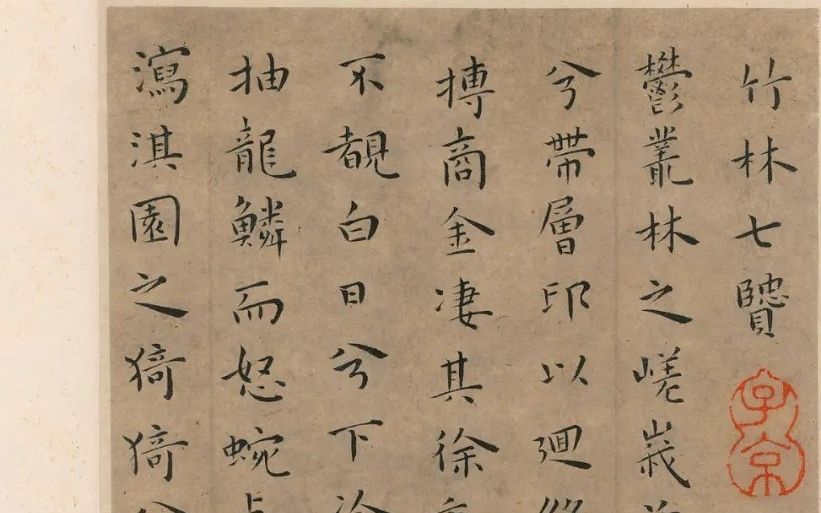 竹林七贒
鬱叢林之嵯峩
兮帶層邱以廻
摶商金淒其徐
不覩白日兮下
抽龍鱗而怒蜿
瀉淇園之猗猗
子京